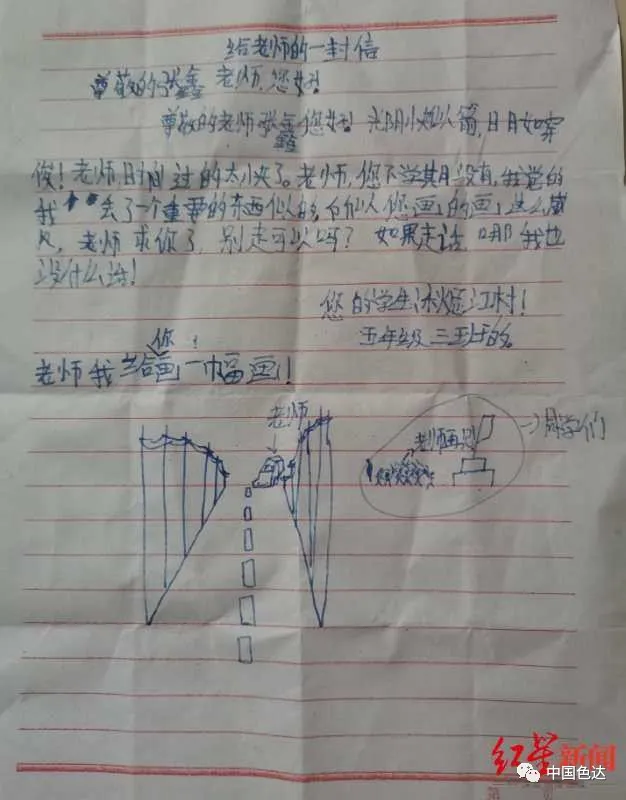 给老师的一封信
尊敬的张鑫老师,您好!
尊敬的老师张鑫您好!光阴小如火箭,日月如穿
俊!老师,时间过的太快了。老师,您下学其月没有,我觉的
我丢了一个重要的东西似的,
风,老师求你了,别走可以吗?如果走话,口那我也
没什么话!
您的学生
江村!
五年级三班的。
你!
老师我给画一巾畐画!
老师
老师再见
→同学们
红星新闻
中国色达